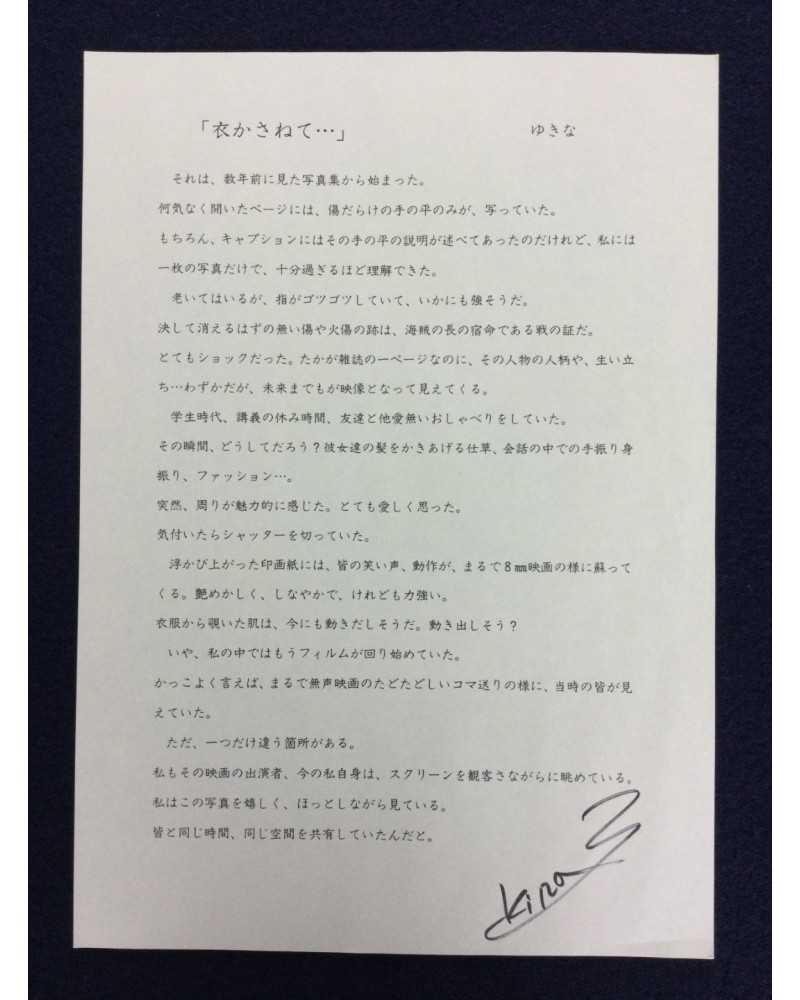 「衣かさねて…」 ゆきな
それは、数年前に見た写真集から始まった。
何気なく開いたページには、傷だらけの手の平のみが、写っていた。
もちろん、キャプションにはその手の平の説明が述べてあったのだけれど、私には
一枚の写真だけで、十分過ぎるほど理解できた。
老いてはいるが、指がゴツゴツしていて、いかにも強そうだ。
決して消えるはずの無い傷や火傷の跡は、海賊の長の宿命である戦の証だ。
とてもショックだった。たかが雑誌の一ページなのに、その人物の人柄や、生い立
ち…わずかだが、未来までもが映像となって見えてくる。
学生時代、講義の休み時間、友達と他愛無いおしゃべりをしていた。
その瞬間、どうしてだろう？彼女達の髪をかきあげる仕草、会話の中での手振り身
振り、ファッション…。
突然、周りが魅力的に感じた。とても愛しく思った。
気付いたらシャッターを切っていた。
浮かび上がった印画紙には、皆の笑い声、動作が、まるで８㎜映画の様に蘇って
くる。艶めかしく、しなやかで、けれども力強い。
衣服から覗いた肌は、今にも動きだしそうだ。動き出しそう？
いや、私の中ではもうフィルムが回り始めていた。
かっこよく言えば、まるで無声映画のたどたどしいコマ送りの様に、当時の皆が見
えていた。
ただ、一つだけ違う箇所がある。
私もその映画の出演者、今の私自身は、スクリーンを観客さながらに眺めている。
私はこの写真を嬉しく、ほっとしながら見ている。
皆と同じ時間、同じ空間を共有していたんだと。